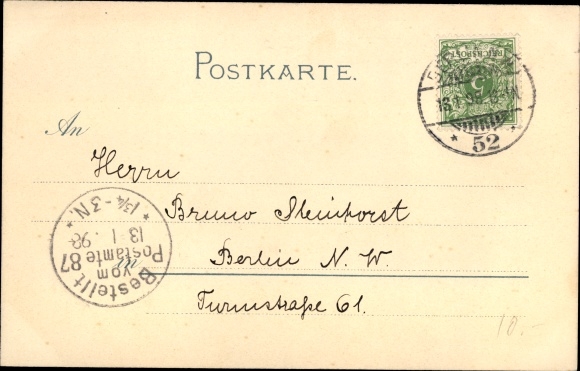 POSTKARTE.
REICHSPOST
5
13.1.98.
52
An
Herrn
Bruno Steinhorst
in Berlin N. W.
Turmstraße 61.
Bestellt
vom
Postamte 87
13-1.98
* 1¾-3N. *
10.-